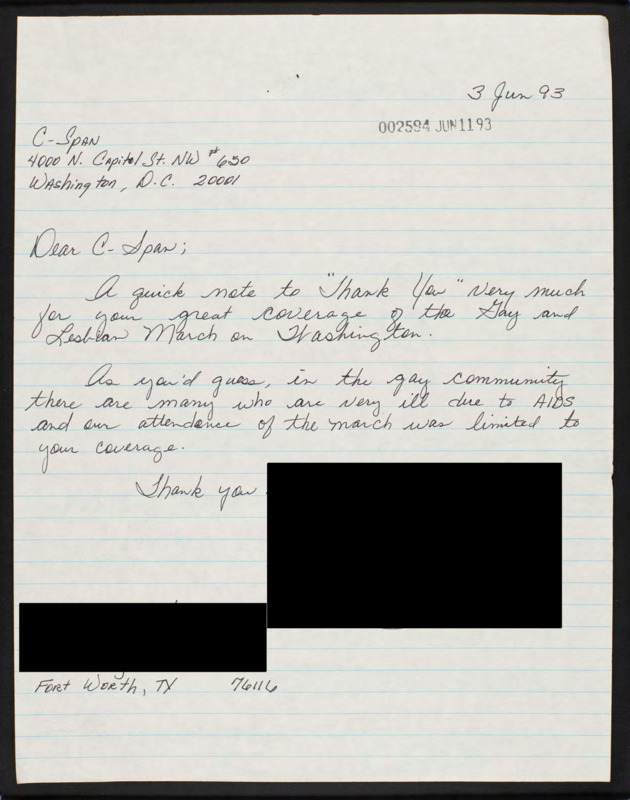 3 Jun 93
002594 JUN1193
C-Span
4000 N. Capitol St. NW #650
Washington, D.C. 20001
Dear C-Span;
A quick note to "Thank You" very much
for your great coverage of the Gay and
Lesbian March on Washington.
As you'd guess, in the gay community
there are many who are very ill due to AIDS
and our attendance of the march was limited to
your coverage.
Thank you
Fort Worth, TX 76116